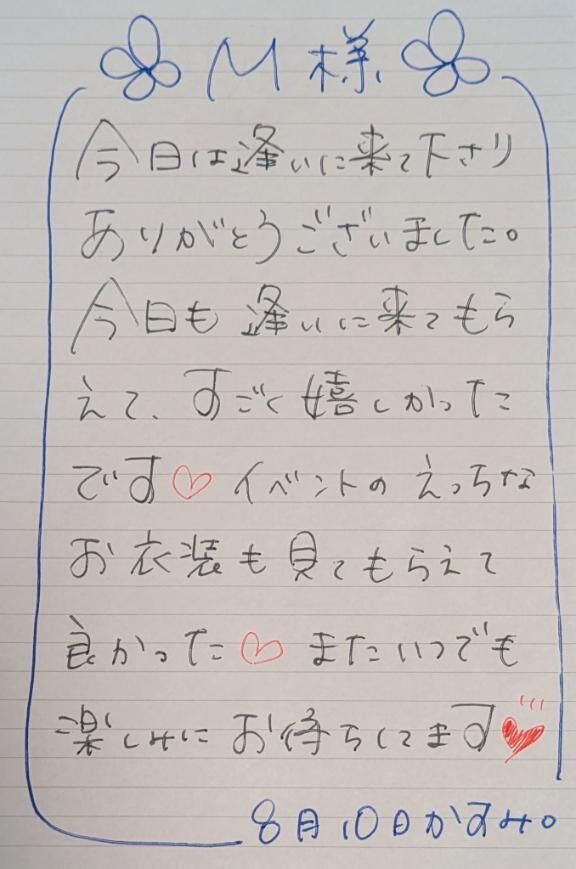 M様
今日は逢いに来て下さり
ありがとうございました。
今日も逢いに来てもら
えて、すごく嬉しかった
です♡イベントのえっちな
お衣装も見てもらえて
良かった♡またいつでも
楽しみにお待ちしてます♥
8月10日かすみ。